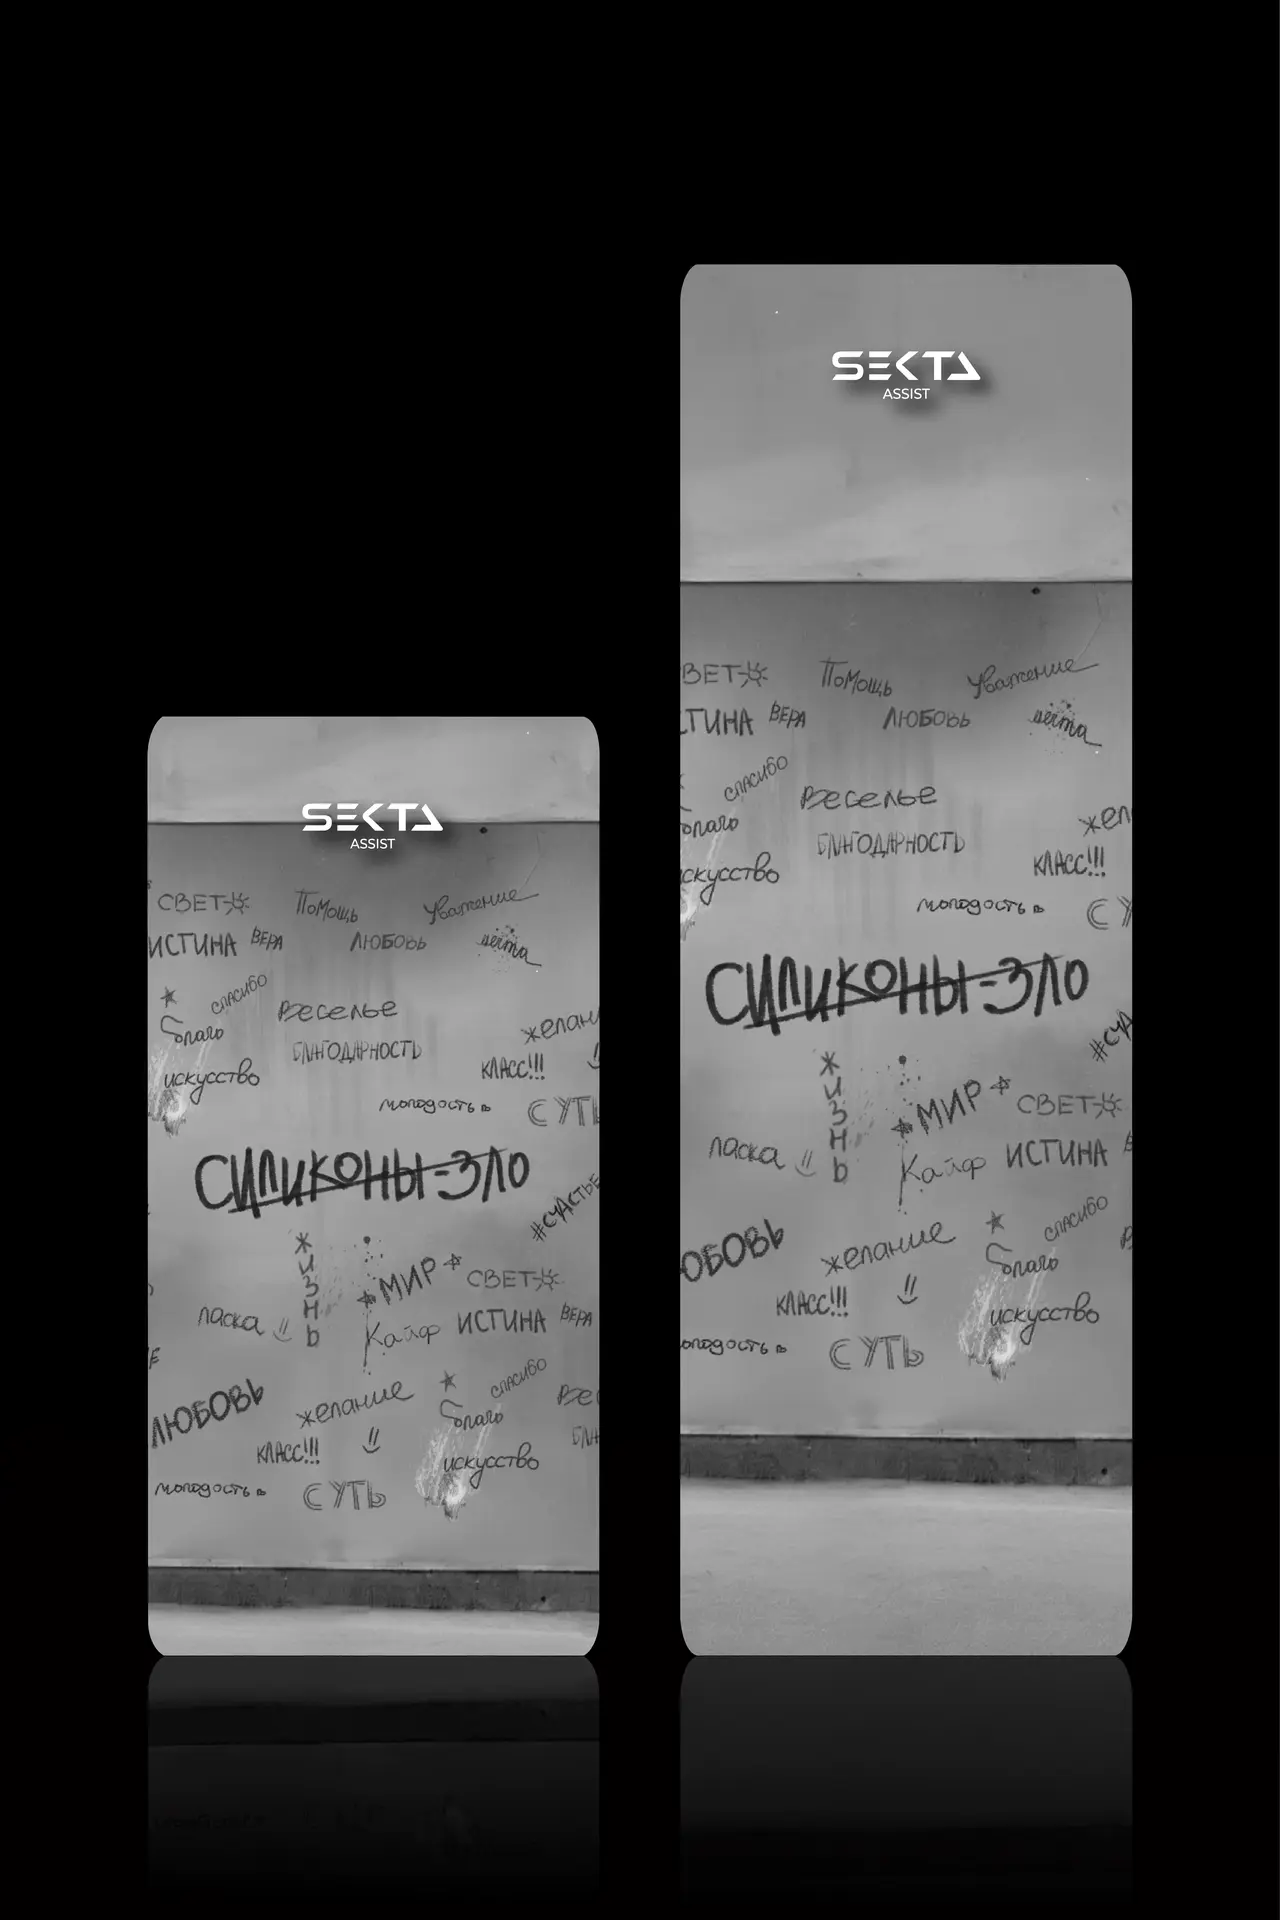 SEKTA
ASSIST
СВЕТ
Помощь
Уважение
ИСТИНА
ВЕРА
ЛЮБОВЬ
мечта
спасибо
благо
Веселье
желани
БЛАГОДАРНОСТЬ
КЛАСС!!!
искусство
молодость
СУТЬ
СИЛИКОНЫ-ЗЛО
#СЧАСТЬЕ
ЖИЗНЬ
МИР
СВЕТ
ласка
Кайф
ИСТИНА
ВЕРА
спасибо
ЛЮБОВЬ
желание
благо
Ве
КЛАСС!!!
БЛА
искусство
молодость
СУТЬ
SEKTA
ASSIST
ВЕТ
Помощь
Уважение
СТИНА
ВЕРА
ЛЮБОВЬ
мечта
спасибо
благо
Веселье
жела
БЛАГОДАРНОСТЬ
КЛАСС!!!
искусство
молодость
СУ
СИЛИКОНЫ-ЗЛО
#СЧА
ЖИЗНЬ
МИР
СВЕТ
ласка
Кайф
ИСТИНА
спасибо
ЮБОВЬ
желание
благо
КЛАСС!!!
искусство
олодость
СУТЬ